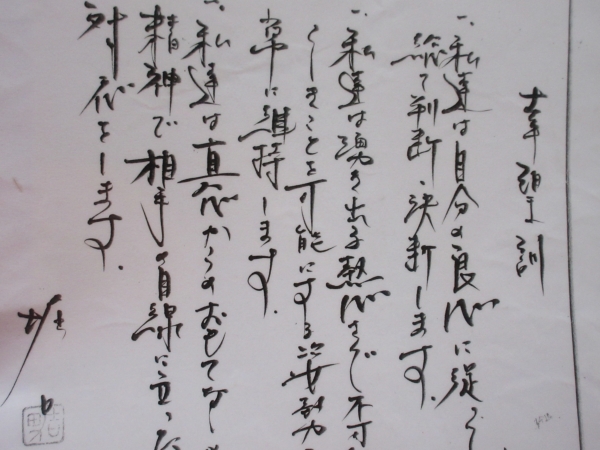 一、私達は自分の良心に従っ
総て判断、決断します。
一、私達は湧き出る熱心さで不可
しきことを可能にする努力
常に維持します。
一、私達は真心からのおもてなしの
精神で相手の目線に立った
対応をします。